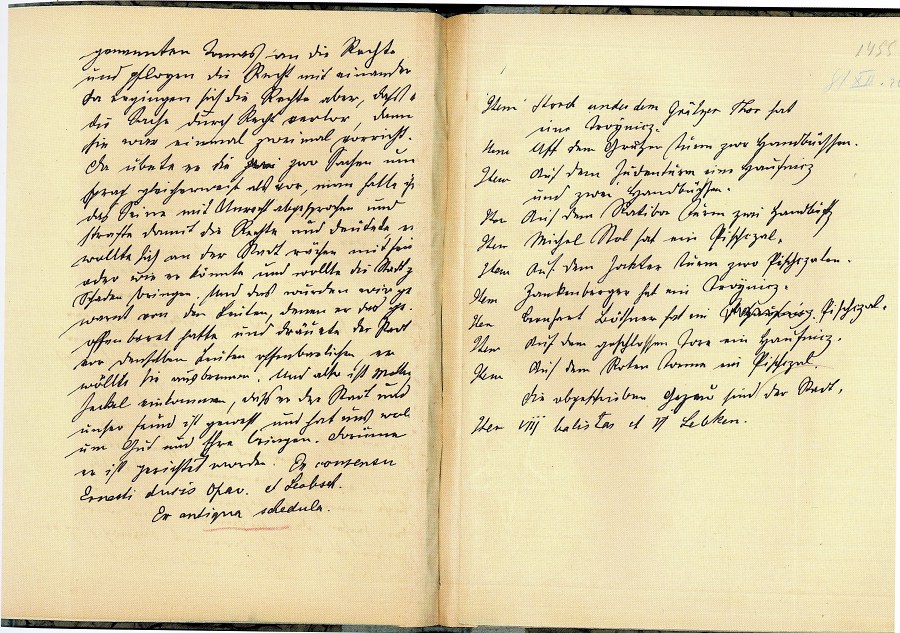 genannten Tomas an die Rechte
und pflogen die Recht mit einander
da ergingen sich die Rechte aber, dass
die Sache durch Recht verlor, denn
sie war einmal zweimal verricht.
Da übete er die zwo Sachen um
sprach gleicherweise als vor, man hatte
das Seine mit Unrecht abgesprochen und
strafte damit die Rechte und deutete er
wollte sich an der Stadt rächen mit
oder wie er könnte und wollte die Stadt z
Schaden bringen. Und das wurden wir ge
warnt von den Leuten, denen er das ge-
offenbaret hatte und dräuete der Stadt
vor denselben Leuten offenbarlichen, er
wöllte sie ausbrennen. Und also ist
Jeckel einkommen, dass er der Stadt und
unser Feind ist gewest und hat uns wol
um Gut und Ehre bringen. Darumme
er ist gerichtet worden. Ex consensu
Ernesti ducis Opav. et Leobsch.
Ex antiqua schedula.
1455
XII
Item Storch under dem Grätzer Thor hat
eine Troynicz.
Item Uff dem Grätzer Turm zwo Handbüchsen.
Item Auf dem Judenturm eine Haufnicz
und zwei Handbüchsen.
Item Auf dem Ratibor Turm zwei Handbüchs
Item Michel Kol hat ein Pischczal.
Item Auf dem Jakter Turm zwo Pischczalen.
Item Zankenberger hat ein Troynicz.
Item Bernhart Büttner hat ein Pischczal.
Item Auf dem geschlossen Tore ein Haufnicz.
Item Auf dem Roten Torme ein Pischczal.
Die abgeschrieben Gezeug sind der Stadt.
Item VIII balistas et VI Lebken.